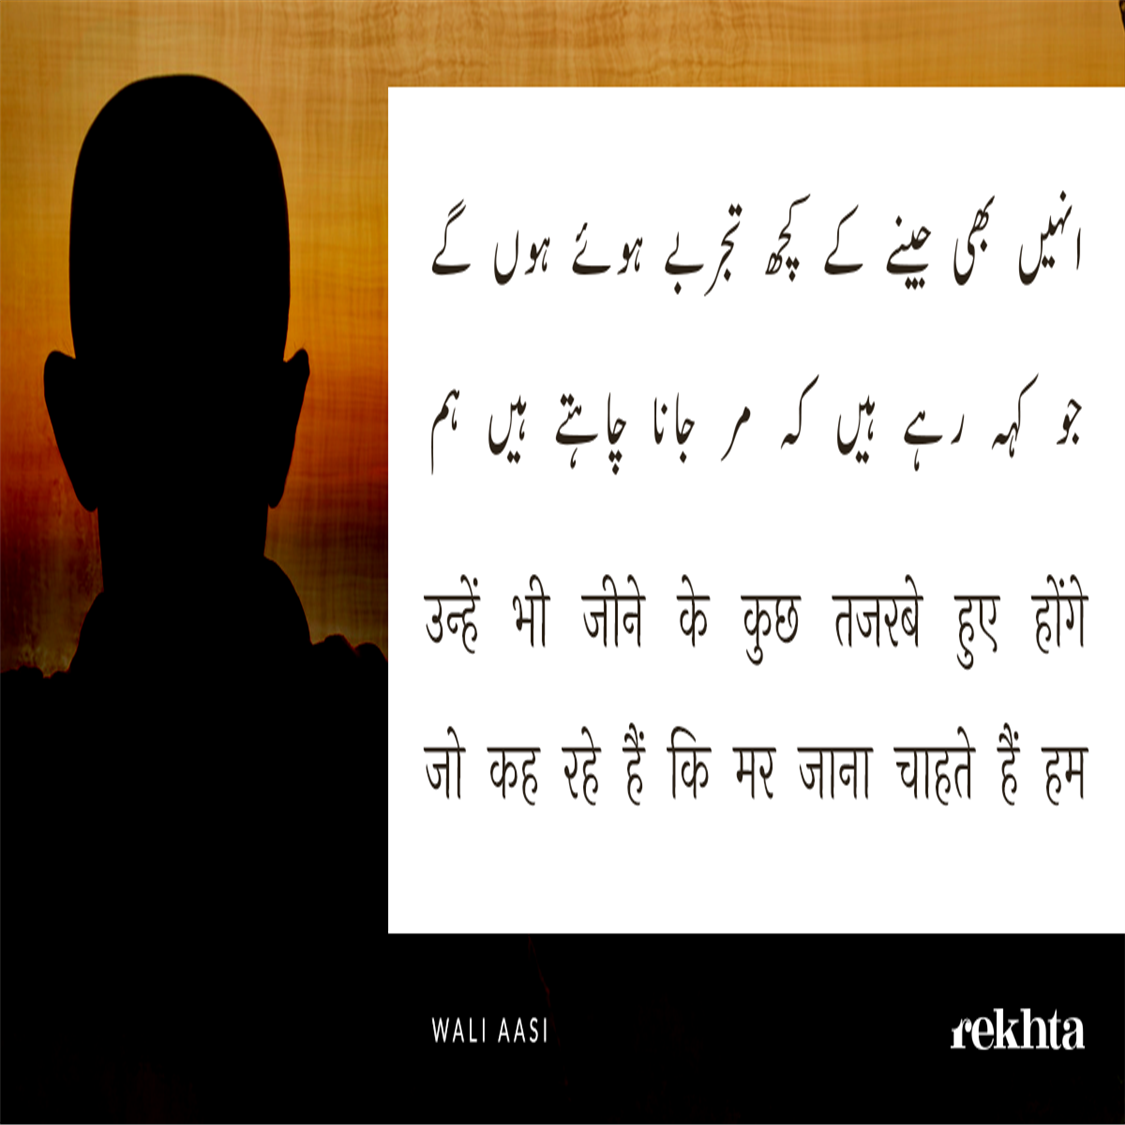 انہیں بھی جینے کے کچھ تجربے ہوئے ہوں گے
جو کہہ رہے ہیں کہ مر جانا چاہتے ہیں ہم
उन्हें भी जीने के कुछ तजरबे हुए होंगे
जो कह रहे हैं कि मर जाना चाहते हैं हम
WALI AASI
rekhta